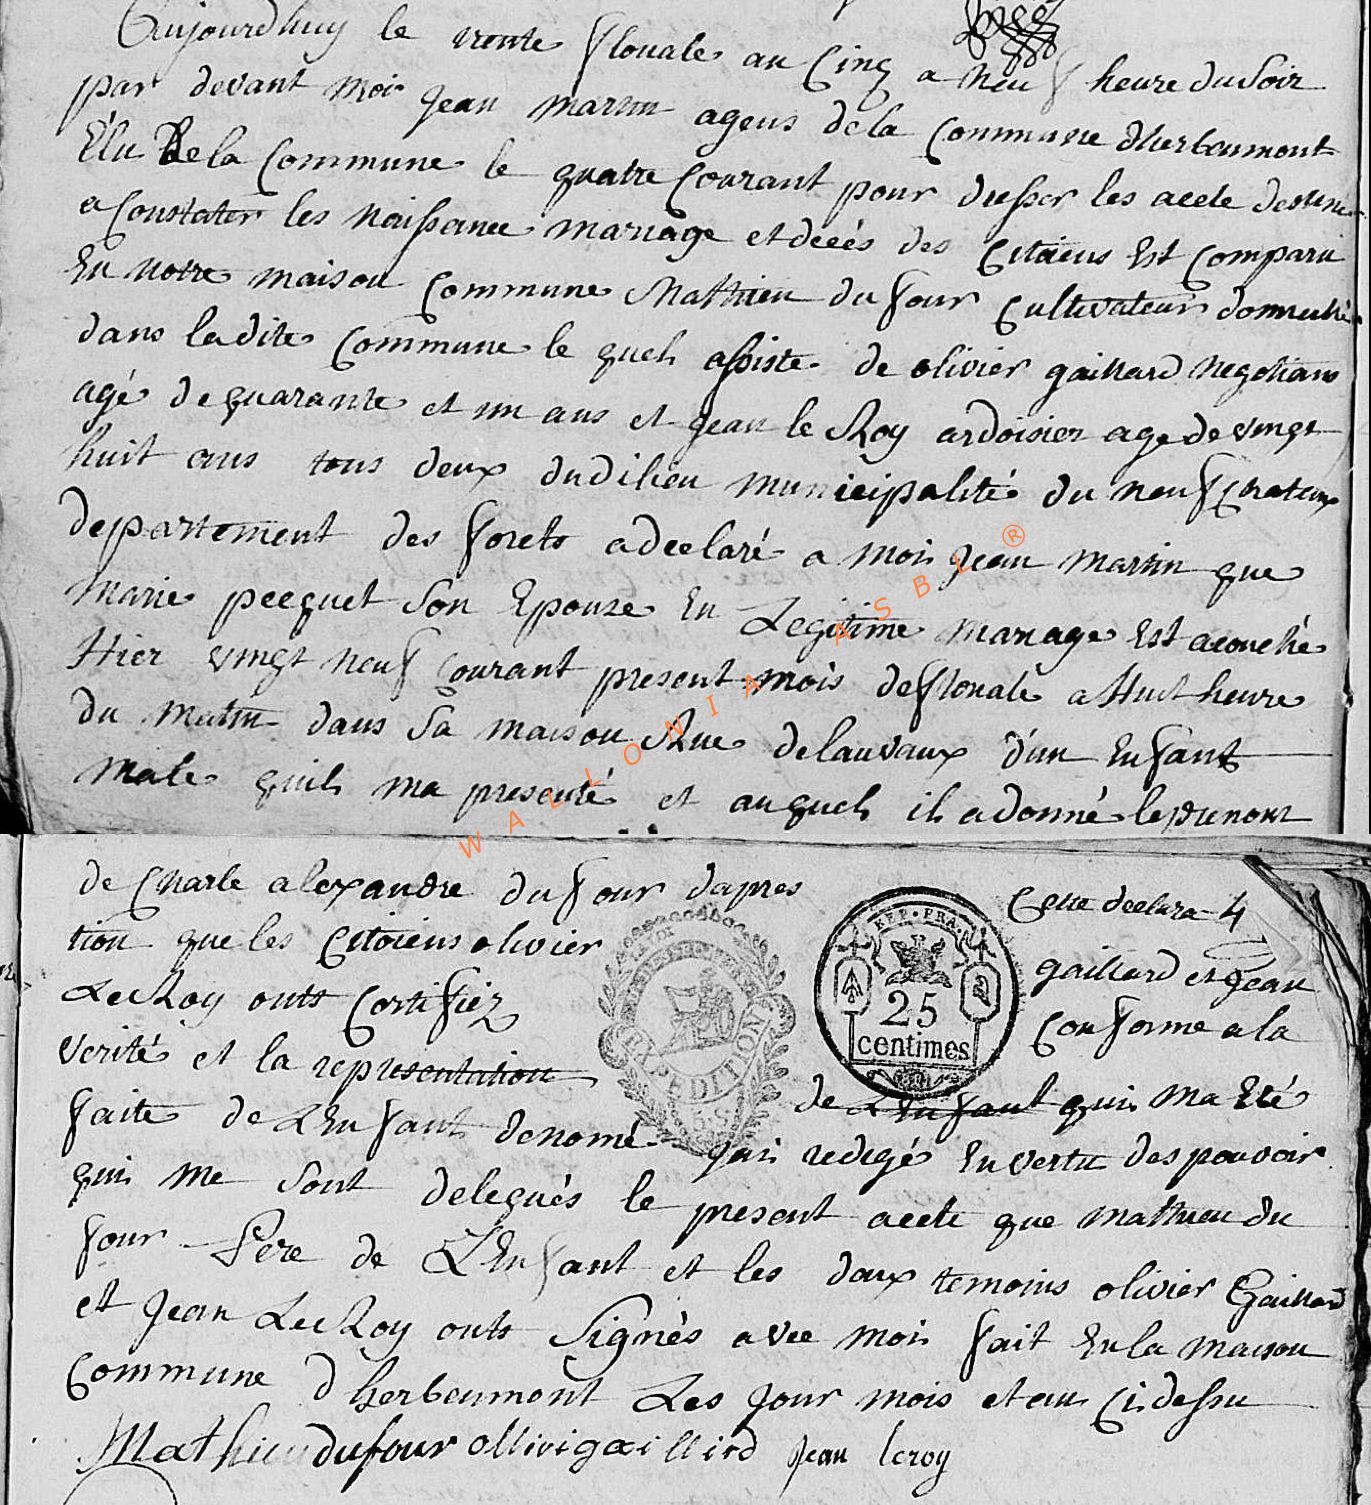 Aujourdhuy le trente florale au Cinq a neuf heure du Soir
par devant moi jean martin agens de la Commune dherbeumont
Élu de la Commune le quatre Courant pour dresser les acte destine
a Constater les naissance mariage et decés des Citoiens Est Comparu
En notre maison Commune Mathieu du four Cultivateur domicilié
dans ladite Commune le quel assiste de olivier gaillard negotians
agé de quarante et un ans et jean le Roy ardoisier age de vingt
huit ans tous deux dudilieu municipalité du neufchateaux
departement des forets a declaré a moi jean martin que
Marie pecquet Son Epouze En Legitime mariage Est acouché
Hier vingt neuf Courant present mois de florale a Huit heure
du matin dans Sa maison Rue delauvaux d'un Enfant
male quil ma presenté et auquel il a donné le prenom
de Charle alexandre du four dapres Cette declara 4
tion que les Citoiens olivier gaillard et jean
Le Roy onts Certifiez Conforme a la
verité et la representation de LEnfant qui ma Eté
faite de LEnfant denomé jai redigé En vertu des pouvoir
qui me Sont delegués le present acte que mathieu du
four Pere de LEnfant et les deux temoins olivier Gaillard
et Jean Le Roy onts Signés avec moi fait En la maison
Commune dherbeumont Les jour mois et an Ci dessu
Mathieu dufour ollivi gaillird jean leroy
REP. FRA.
25
centimes
EXPEDITION
WALLONIA ASBL ®